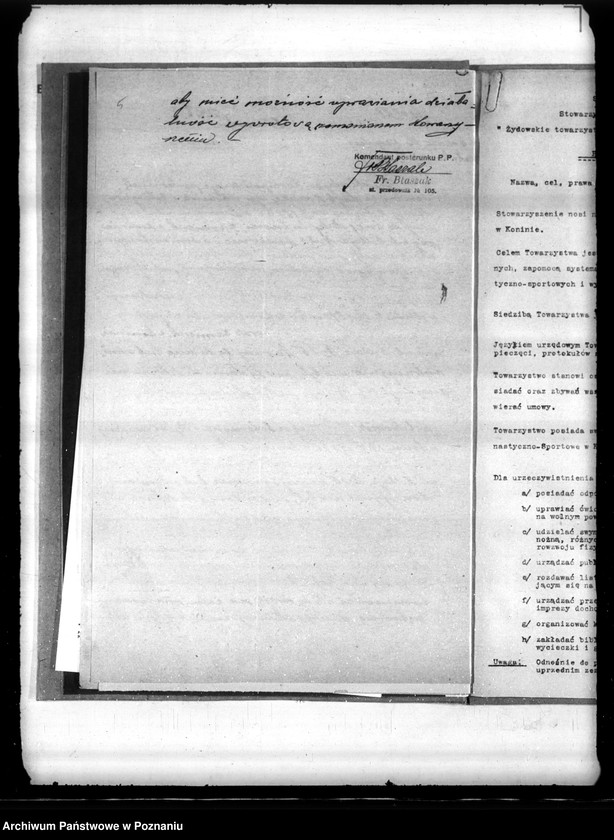 6
aby mieć możność uprawiania działa-
lność wywrotową
Komendant posterunku P.P.
Fr. Błaszak
st. przodownik № 105.
Stowarzy
" Żydowskie towarzyst
Nazwa, cel, prawa
Stowarzyszenie nosi n
w Koninie.
Celem Towarzystwa jes
nych, zapomocą systema
tyczno-sportowych i wy
Siedzibą Towarzystwa
Językiem urzędowym Tow
pieczęci, protokułów
Towarzystwo stanowi
siadać oraz zbywać
wierać umowy.
Towarzystwo posiada
nastyczno-Sportowe w
Dla urzeczywistnienia
a/ posiadać odpo
b/ uprawiać ćwic
na wolnym pow
c/ udzielać swym
nożną, różnyc
rozwoju fizy
d/ urządzać publ
e/ rozdawać list
jącym się na
f/ urządzać prze
imprezy docho
g/ organizować
h/ zakładać bibl
wycieczki i
Uwaga: Odnośnie do
uprzednim zez
Archiwum Państwowe w Poznaniu